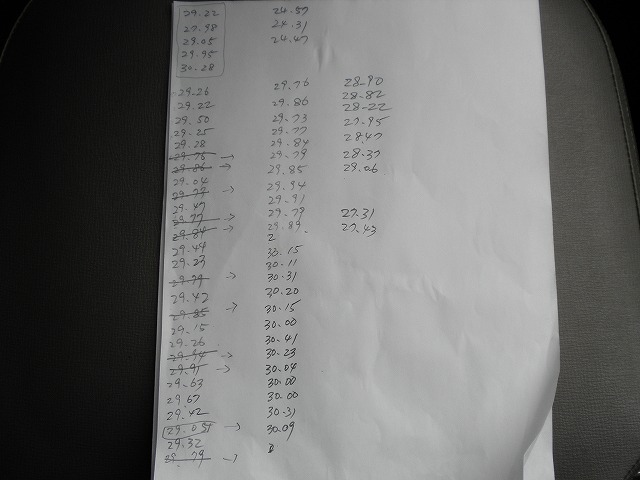 29.22 24.57
27.98 24.31
29.05 24.47
29.95
30.28
29.26 29.76 28-90
29.22 29.86 28-82
29.50 29.73 28-22
29.25 29.77 27-95
29.28 29.84 28.47
29.76 → 29.79 28-37
29.86 → 29.85 29.06
29.04
29.77 → 29.94
29.47 29.91
29.77 → 29.79 27.31
29.84 → 29.89 27.43
29.44 2
29.23 30.15
30.11
29.79 → 30.31
29.42 30.20
29.85 → 30.15
29.15 30.00
29.26 30.41
29.94 → 30.23
29.91 → 30.04
29.63 30.00
29.67 30.00
29.42 30.31
29.05 → 30.09
29.32
29.79 →